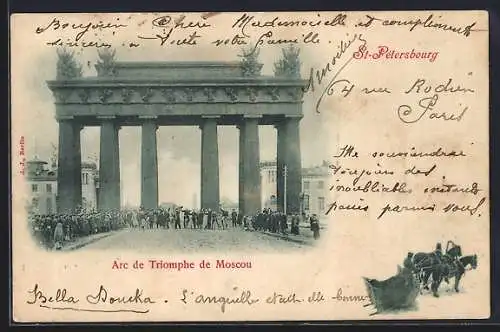 Bonjour chère Mademoiselle et compliments
sincères à toute votre famille
St-Pétersbourg
64 rue Rodier
Paris
Me souviendrai
toujours des
inoubliables instants
passés parmis vous.
A. J., Berlin
Arc de Triomphe de Moscou
Bella Boucka. L'anguille était-elle bonne